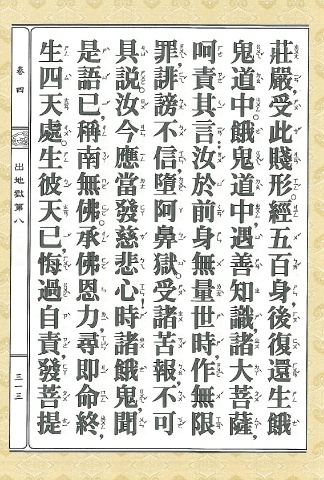 莊嚴受此賤形。經五百身，後復還生餓
鬼道中。餓鬼道中，遇善知識，諸大菩薩，
呵責其言：汝於前身無量世時，作無限
罪，誹謗不信，墮阿鼻獄。受諸苦報，不可
具說。汝今應當發慈悲心！時諸餓鬼聞
是語已，稱南無佛。承佛恩力，尋即命終，
生四天處。生彼天已，悔過自責，發菩提
卷四
出地獄第八
三一三